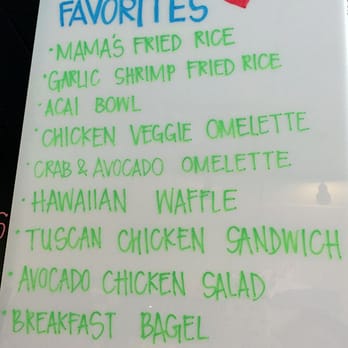 FAVORITES
• MAMA'S FRIED RICE
• GARLIC SHRIMP FRIED RICE
• ACAI BOWL
• CHICKEN VEGGIE OMELETTE
• CRAB & AVOCADO OMELETTE
• HAWAIIAN WAFFLE
• TUSCAN CHICKEN SANDWICH
• AVOCADO CHICKEN SALAD
• BREAKFAST BAGEL